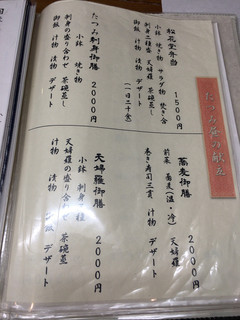 たつみ庵の献立
松花堂弁当 1500円
小鉢 焼き物 サラダ物 焚き合
刺身二種盛 天婦羅 茶碗蒸し
御飯 汁物 漬物 デザート
(一日二十食)
たつみ刺身御膳 2000円
小鉢 焼き物
刺身の盛り合わせ 茶碗蒸し
御飯 汁物 漬物 デザート
蕎麦御膳 2000円
前菜 蕎麦(温・冷) 天婦羅
巻き寿司三貫 汁物 デザート
天婦羅御膳 2000円
小鉢 刺身二種
天婦羅の盛り合わせ 茶碗蒸
汁物 漬物 ご飯 デザート